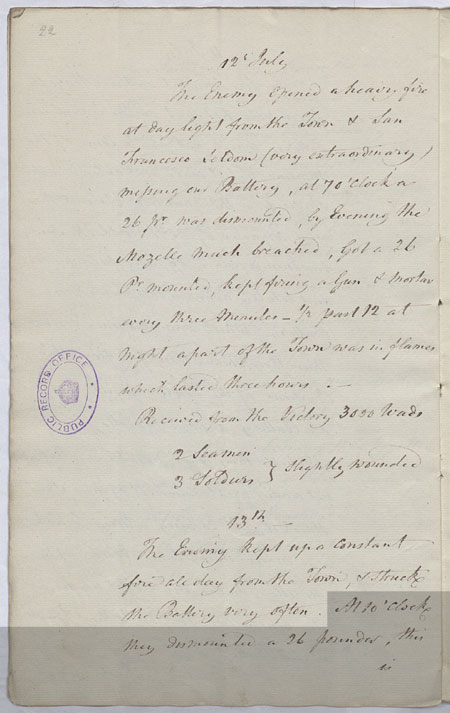 22
12th July
The Enemy opened a heavy fire
at day light from the Town & San
Francesco Seldom (very extraordinary)
missing our Battery, at 7 o'Clock a
26 Pr. was dismounted, by Evening the
Mozelle much breached, Got a 26
Pr mounted, kept firing a Gun & Mortar
every three Minutes – 1/2 past 12 at
Night a part of the Town was in flames
which lasted three hours. —
Received from the Victory 3020 Wads
2 Seamen
3 Soldiers } slightly wounded
13th
The Enemy kept up a constant
fire all day from the Town, & struck
the Battery very often. At 10 o'Clock
they dismounted a 26 pounder, this
is
PUBLIC RECORD OFFICE